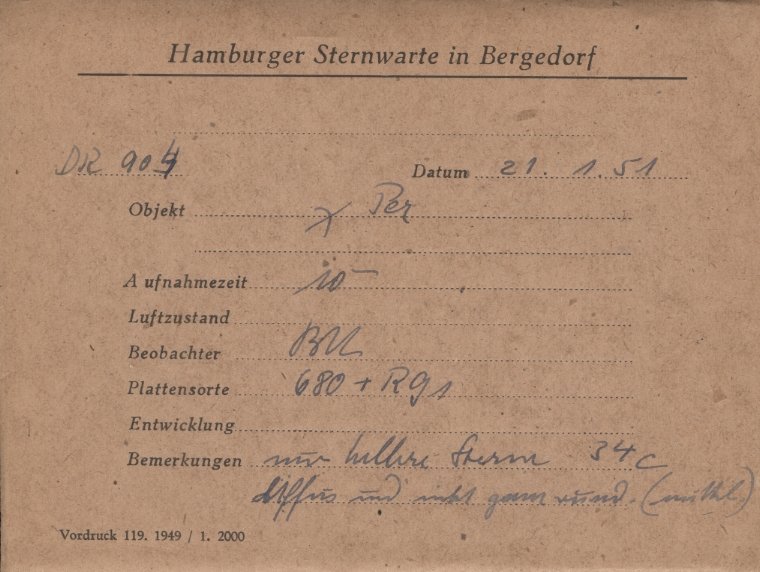 Hamburger Sternwarte in Bergedorf
DR 904 Datum 21. 1. 51
Objekt χ Per
Aufnahmezeit 10
Luftzustand
Beobachter
Plattensorte 680 + RG1
Entwicklung
Bemerkungen nur hellere Sterne 34c
diffus und nicht ganz rund.
Vordruck 119. 1949 / 1. 2000